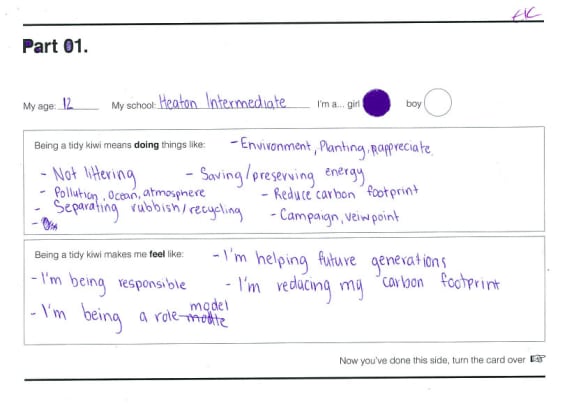 HC
Part 01.
My age: 12 My school: Heaton Intermediate I'm a... girl boy
Being a tidy kiwi means doing things like: - Environment, Planting, rappreciate
- Not littering - Saving/preserving energy
- Pollution, Ocean, atmosphere - Reduce carbon footprint
- Separating rubbish/recycling - Campaign, veiwpoint
-
Being a tidy kiwi makes me feel like: - I'm helping future generations
- I'm being responsible - I'm reducing my carbon footprint
- I'm being a role model
Now you've done this side, turn the card over